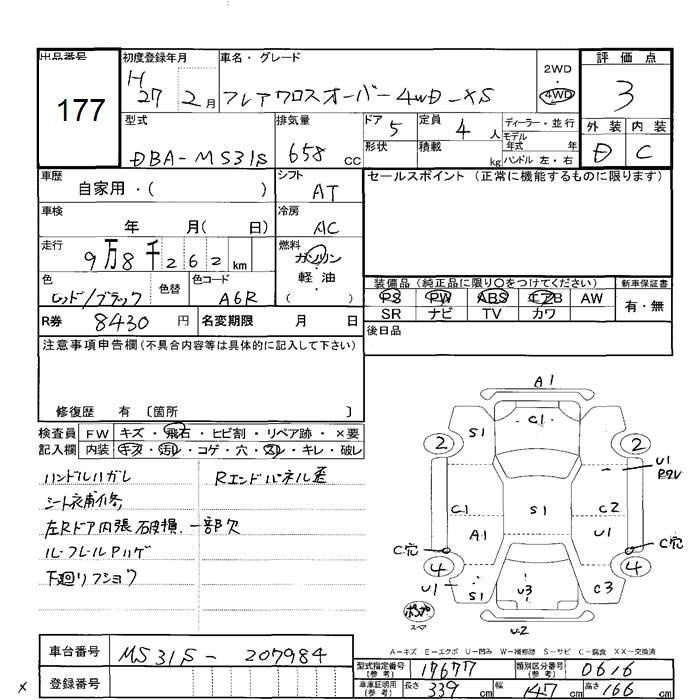 出品番号
177
初度登録年月
H
27 2月
車名・グレード
フレアクロスオーバー 4WD-XS
2WD
・
4WD
評価点
3
外装 内装
D C
型式
DBA-MS31S
排気量
658 cc
ドア 5
定員 4 人
形状
積載 kg
ディーラー・並行
モデル年式 年
ハンドル 左・右
車歴
自家用・( )
シフト
AT
車検
年 月( 日)
冷房
AC
走行
9万8千262km
燃料
ガソリン
・
軽・油
( )
色
レッド/ブラック
色替
色コード
A6R
R券 8430 円
名変期限 月 日
セールスポイント (正常に機能するものに限ります)
装備品 (純正品に限り○をつけてください)
PS PW ABS エアB AW
SR ナビ TV カワ
新車保証書
有・無
後日品
注意事項申告欄(不具合内容等は具体的に記入して下さい)
修復歴 有 〔箇所 〕
検査員記入欄
FW キズ・飛石・ヒビ割・リペア跡・×要
内装 キズ・汚レ・コゲ・穴・スレ・キレ・破レ
ハンドルハガレ
Rエンドパネル歪
シート補修
左Rドア内張破損 一部欠
ルーフレールPハゲ
下廻りフショク
A1
C1
S1
2
2
U1
Pタレ
C1
S1
C2
A1
U1
C穴
C穴
4
4
U1
S1
U3
C3
ポンプ
スペア
U2
A-キズ E-エクボ U-凹み W-補修跡 S-サビ C-腐食 XX-交換済
車台番号 MS31S-207984
登録番号
型式指定番号(参考) 17677
類別区分番号(参考) 0616
車庫証明用(参考) 長さ 339 cm 幅 147 cm 高さ 166 cm
×